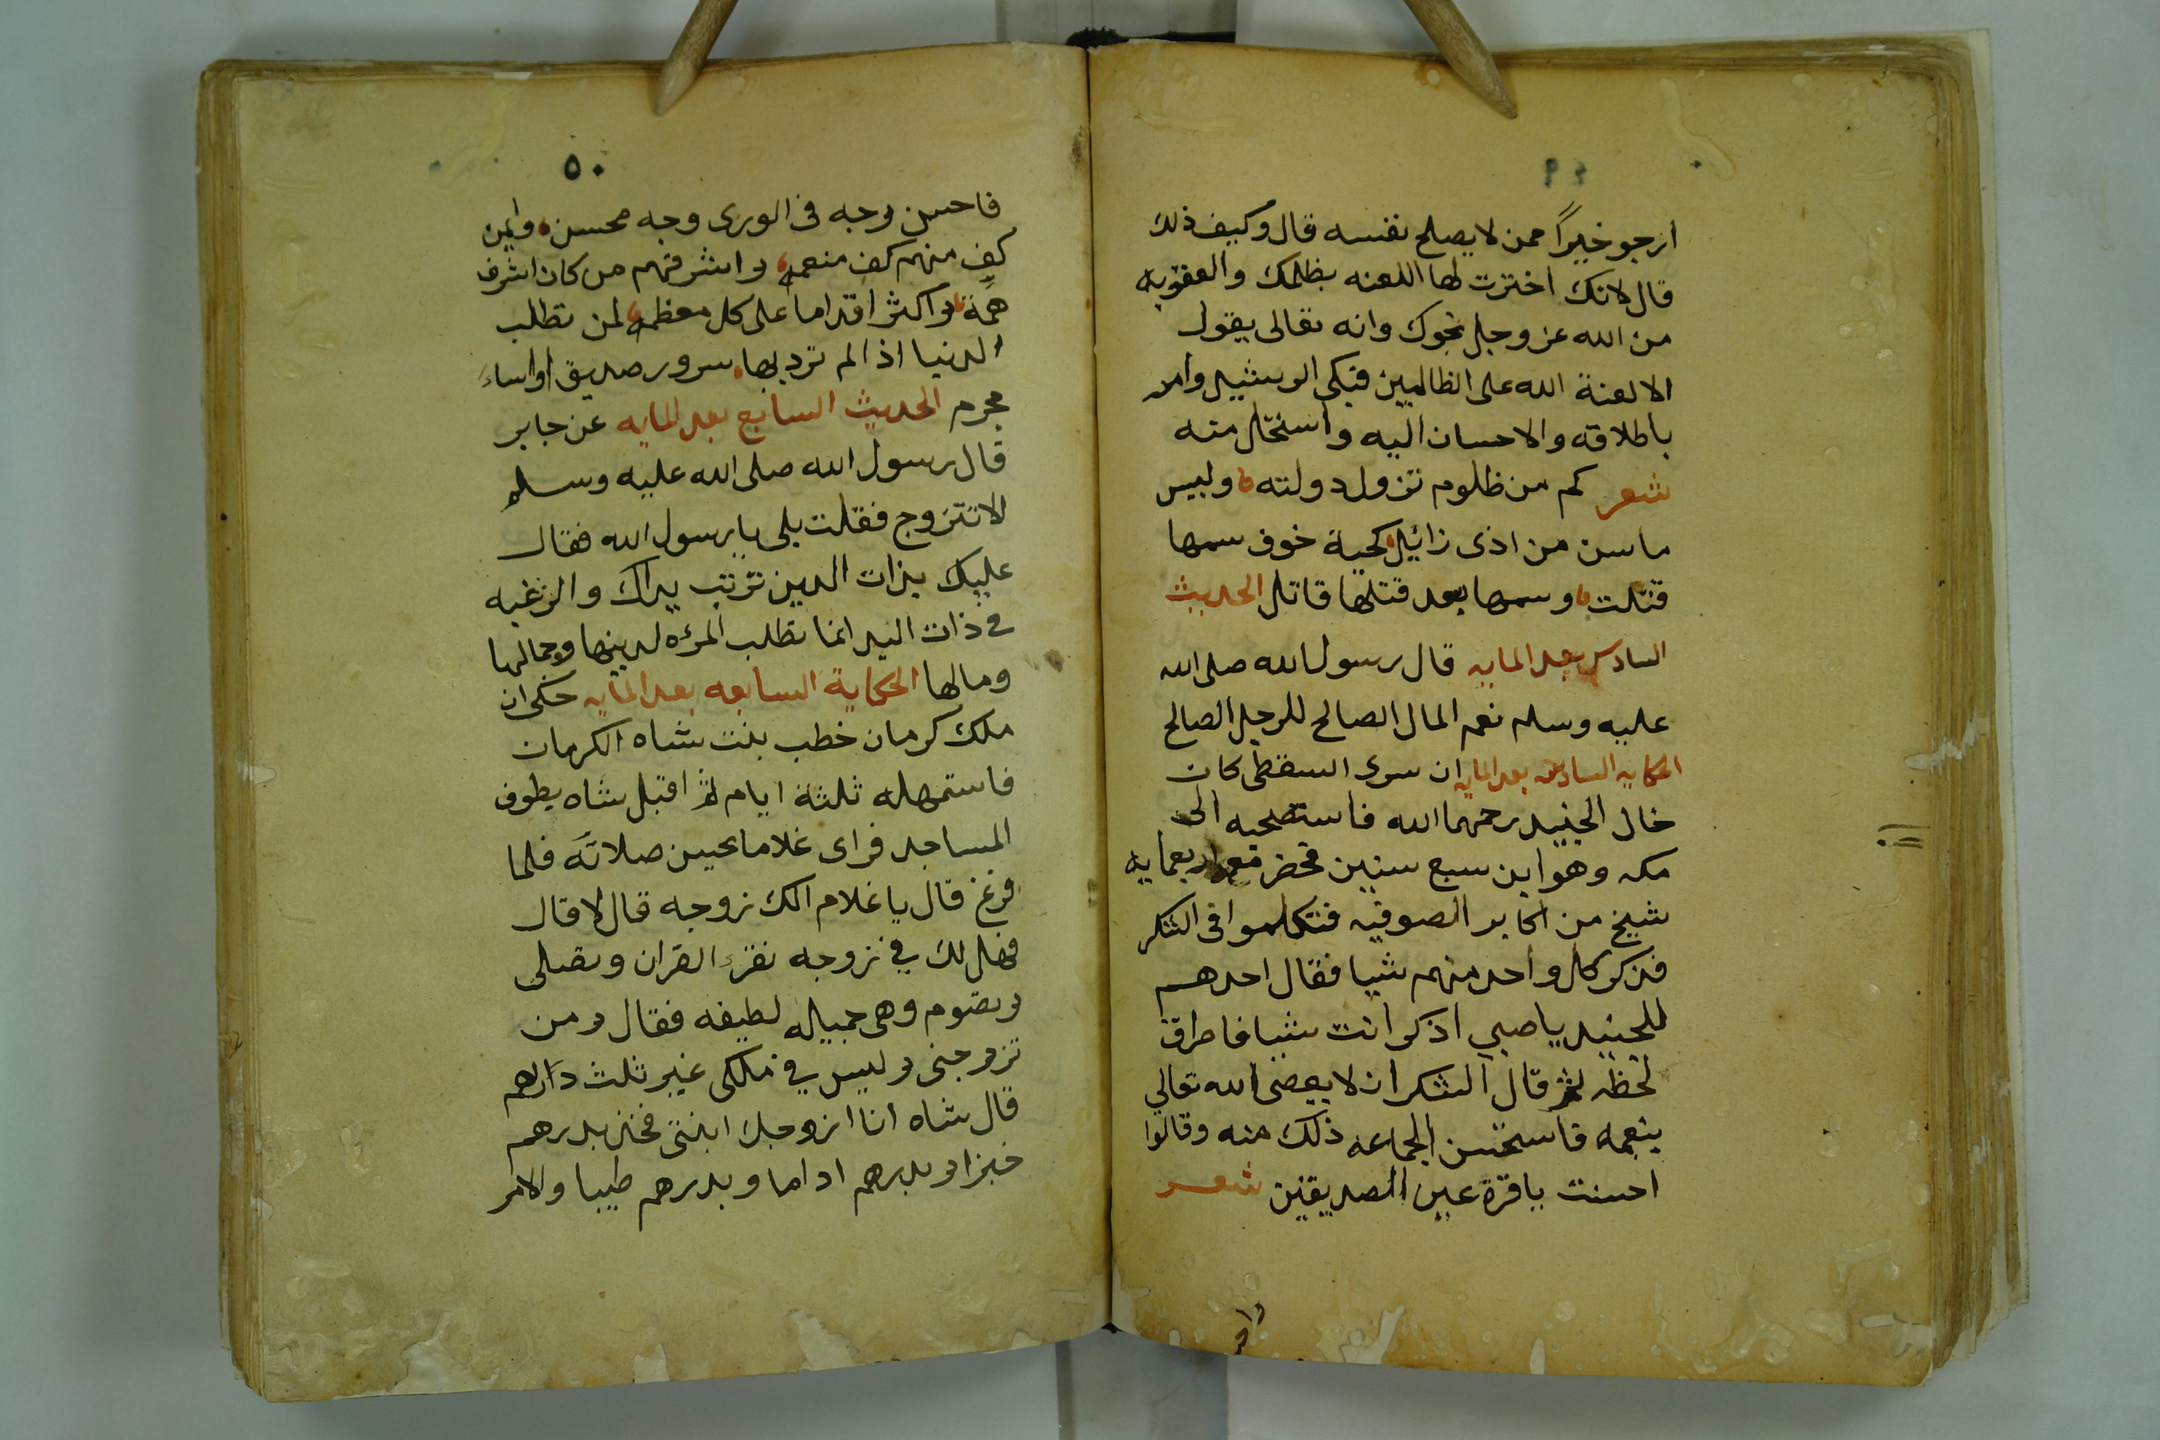 ارجو خيراً ممن لا يصلح نفسه قال وكيف ذلك
قال لانك اخترت لها اللعنه بظلمك والعقوبه
من الله عز وجل نحوك وانه تعالى يقول
الا لعنة الله على الظالمين فبكى الرشيد وامر
باطلاقه والاحسان اليه واستحل منه
شعر كم من ظلوم تزول دولته وليس
ما سن من اذى زائل كحية خوف سمها
قتلت وسمها بعد قتلها قاتل الحديث
السادس بعد المايه قال رسول الله صلى الله
عليه وسلم نعم المال الصالح للرجل الصالح
الحكايه السادسه بعد المايه ان سرى السقطى كان
خال الجنيد رحمهما الله فاستصحبه الى
مكه وهو ابن سبع سنين فحضر معه اربعمايه
شيخ من اكابر الصوفيه فتكلموا فى الشكر
فذكر كل واحد منهم شيا فقال احدهم
للجنيد يا صبي اذكر انت شيا فاطرق
لحظه ثم قال الشكر ان لا يعصى الله تعالي
بنعمه فاستحسن الجماعه ذلك منه وقالوا
احسنت ياقرة عين الصديقين شعر
فاحسن
٥٠
فاحسن وجه فى الورى وجه محسن وايمن
كف منهم كف منعم واشرفهم من كان اشرف
همة واكثر اقداما على كل معظم لمن تطلب
الدنيا اذا لم ترد بها سرور صديق او اساء
مجرم الحديث السابع بعد المايه عن جابر
قال رسول الله صلى الله عليه وسلم
الا تتزوج فقلت بلى يا رسول الله فقال
عليك بذات الدين تربت يداك والرغبه
في ذات اليد انما تطلب المرءه لدينها وجمالها
ومالها الحكاية السابعه بعد المايه حكى ان
ملك كرمان خطب بنت شاه الكرمان
فاستمهله ثلثة ايام ثم اقبل شاه يطوف
المساجد فراى غلاما يحسن صلاته فلما
فرغ قال يا غلام الك زوجه قال لا قال
فهل لك في زوجه تقرء القران وتصلي
وتصوم وهى جميله لطيفه فقال ومن
تزوجنى وليس في ملكى غير ثلث دراهم
قال شاه انا ازوجك ابنتى فخذ بدرهم
خبزا وبدرهم اداما وبدرهم طيبا والامر